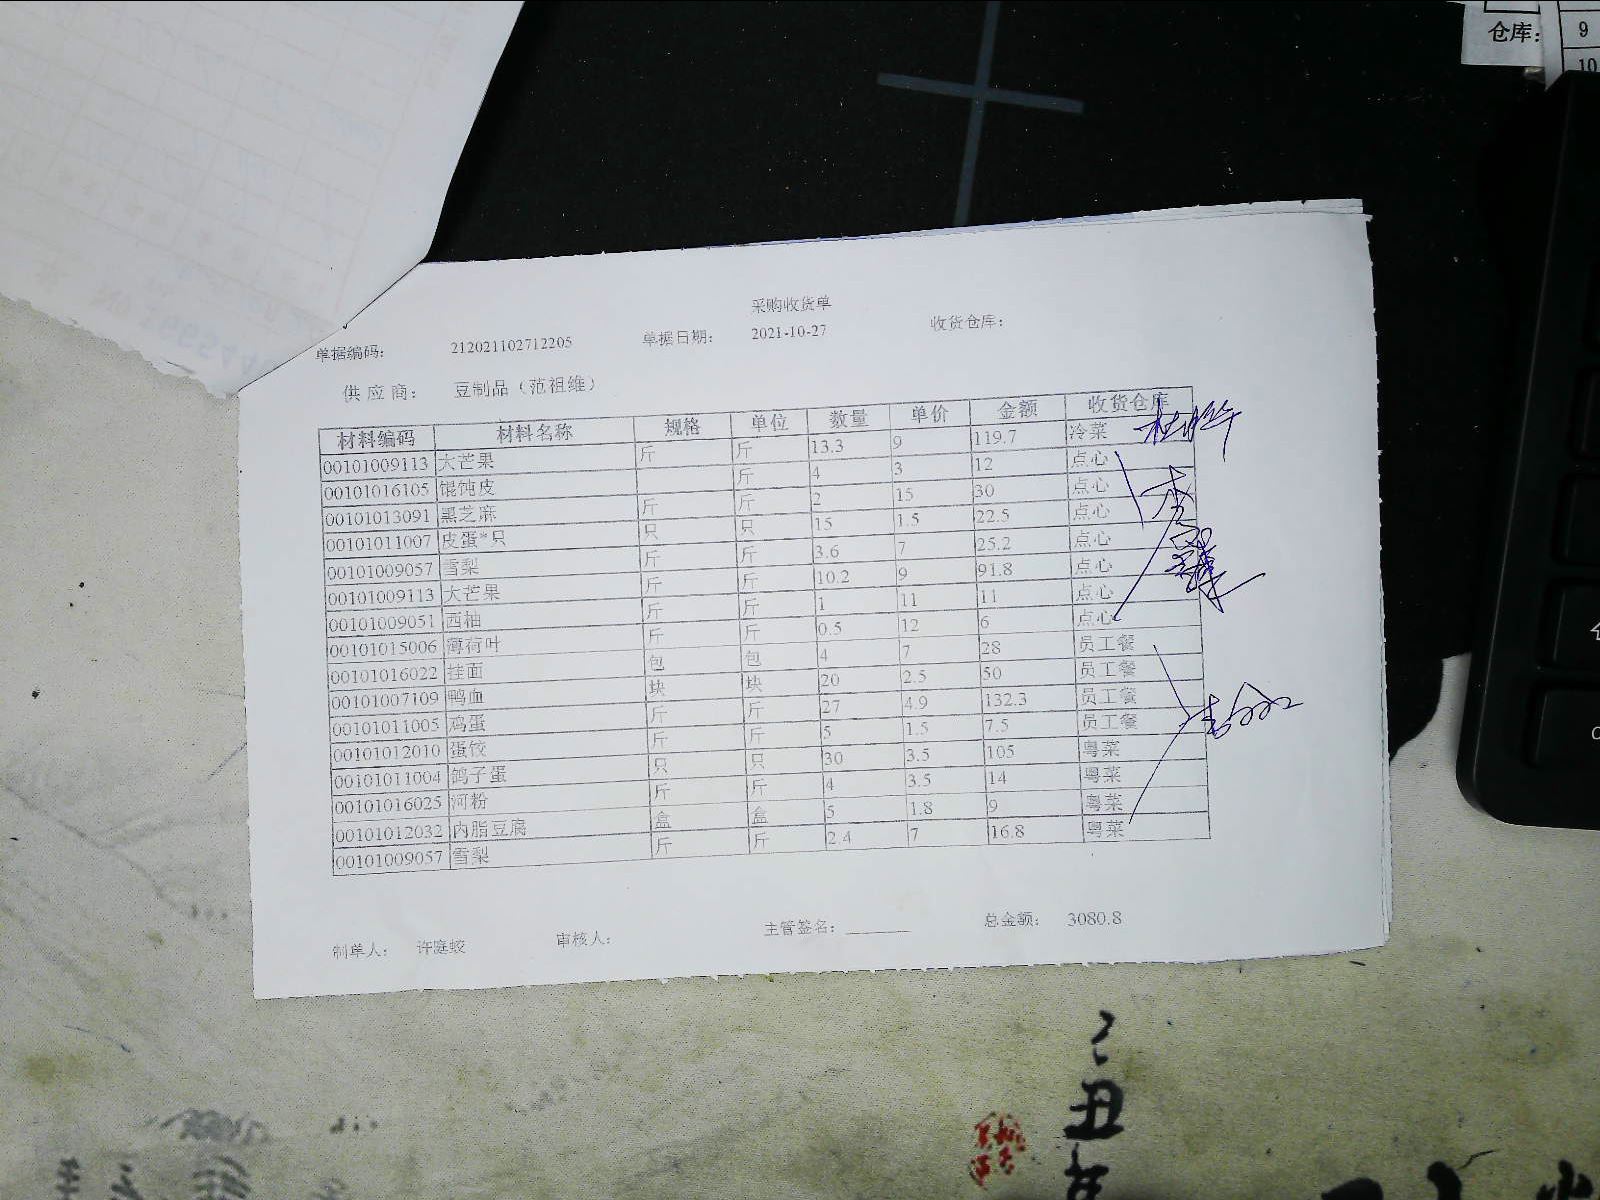 仓库: 9
10
采购收货单
单据编码: 212021102712205 单据日期: 2021-10-27 收货仓库:
供应商: 豆制品（范祖维）
材料编码 材料名称 规格 单位 数量 单价 金额 收货仓库
00101009113 大芒果 斤 斤 13.3 9 119.7 冷菜
00101016105 馄饨皮 斤 4 3 12 点心
00101013091 黑芝麻 斤 斤 2 15 30 点心
00101011007 皮蛋*只 只 只 15 1.5 22.5 点心
00101009057 雪梨 斤 斤 3.6 7 25.2 点心
00101009113 大芒果 斤 斤 10.2 9 91.8 点心
00101009051 西柚 斤 斤 1 11 11 点心
00101015006 薄荷叶 斤 斤 0.5 12 6 点心
00101016022 挂面 包 包 4 7 28 员工餐
00101007109 鸭血 块 块 20 2.5 50 员工餐
00101011005 鸡蛋 斤 斤 27 4.9 132.3 员工餐
00101012010 蛋饺 斤 斤 5 1.5 7.5 员工餐
00101011004 鸽子蛋 只 只 30 3.5 105 粤菜
00101016025 河粉 斤 斤 4 3.5 14 粤菜
00101012032 内脂豆腐 盒 盒 5 1.8 9 粤菜
00101009057 雪梨 斤 斤 2.4 7 16.8 粤菜
制单人: 许庭蛟 审核人: 主管签名: 总金额: 3080.8
丑